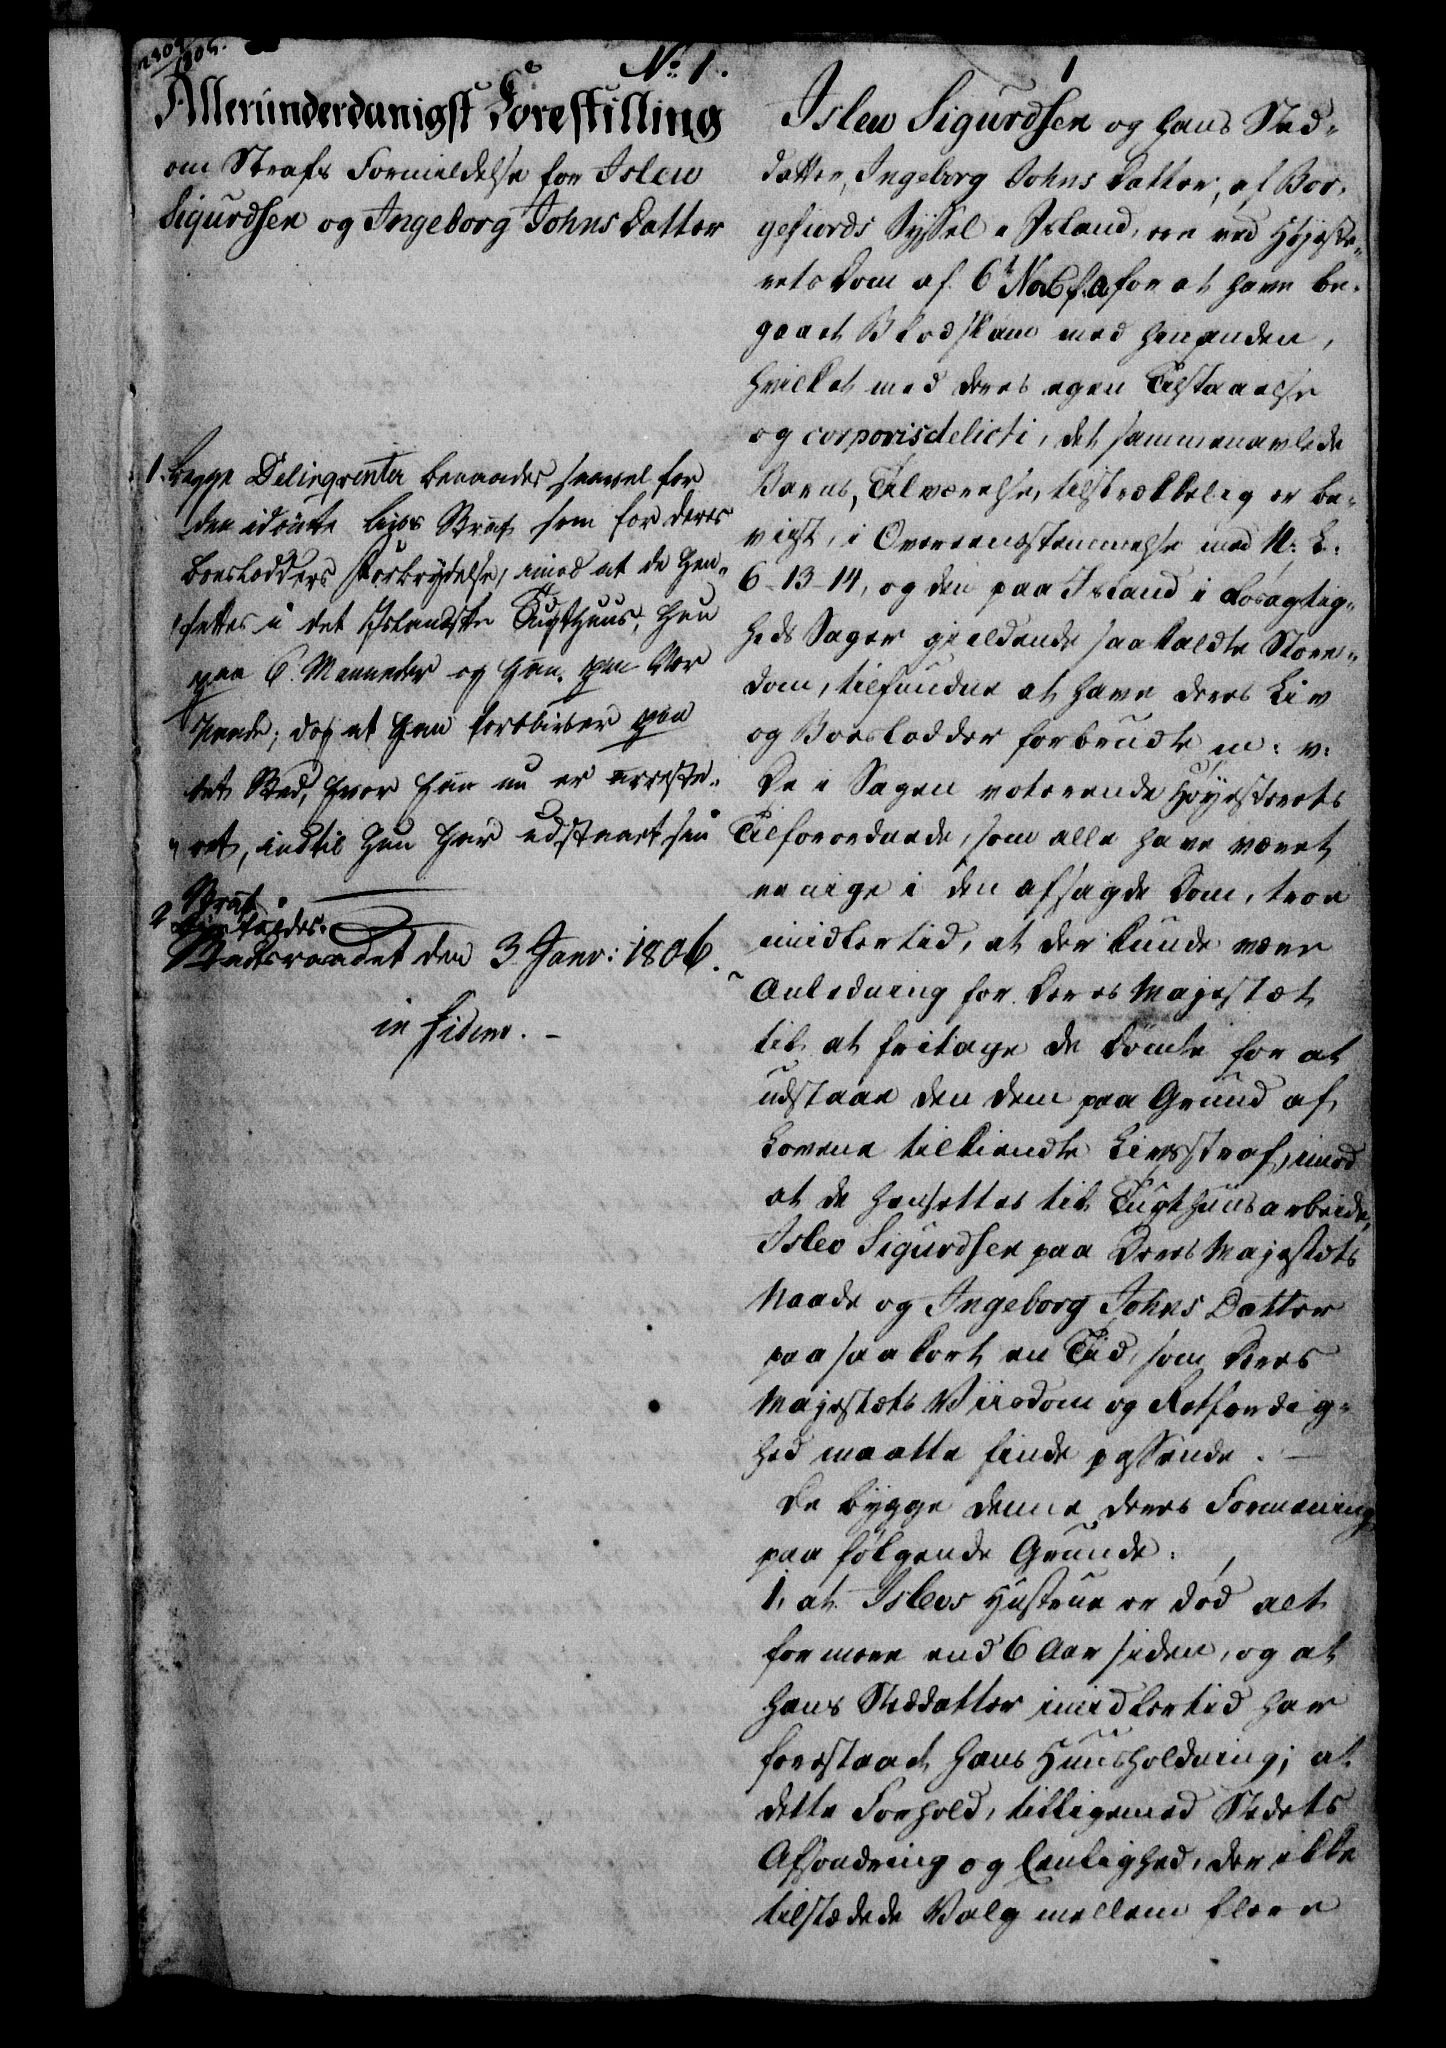 1805.
No 1.
Allerunderdanigst Forestilling
om Strafs Formildelse for Islev
Sigurdsen og Ingeborg Johns Datter
1. Begge Delinqventer benaades saavel for
den idömte Livs Straf som for deres
Boeslodders Forbrydelse, imod at de hen-
sættes i det Islandske Tugthuus, hun
paa 6 Maaneder og han paa Vor
Naade; dog at han forbliver paa
det Sted, hvor han nu er arreste-
ret, indtil hun har udstaaet sin
Straf.
2
Statsraadet den 3 Janv: 1806.
in fidem. -
1
Islev Sigurdsen og hans Sted-
datter, Ingeborg Johns Datter, af Bor-
gefiords Syssel i Island, ere ved Höjeste-
rets Dom af 6t Novb. f. A. for at have be-
gaaet Blodskam med hinanden,
hvilket med deres egen Tilstaaelse
og corporis delicti, det sammenavlede
Barns, Tilværelse, tilstrækkelig er be-
vist, i Overeensstemmelse med N: L:
6-13-14, og den paa Island i Losagtig-
heds Sager gieldende saakaldte Store-
dom, tilfundne at have deres Liv
og Boeslodder forbrudte m: v:
De i Sagen voterende Höyesterets
Tilforordnede, som alle have været
eenige i den afsagde Dom, troe
imidlertid, at der kunde være
Anledning for Deres Majestæt
til at fritage de Dömte for at
udstaae den dem paa Grund af
Lovene tilkiendte Livsstraf, imod
at de hensettes til Tugthuusarbeide,
Islev Sigurdsen paa Deres Majestæts
Naade og Ingeborg Johns Datter
paa saa kort en Tid, som Deres
Majestæts Viisdom og Retfærdig-
hed maatte finde passende. -
De bygge denne deres Formening
paa fölgende Grunde:
1, at Islevs Hustrue er död alt
for mere end 6 Aar siden, og at
hans Steddatter imidlertid har
forestaaet hans Huusholdning; at
dette Forhold, tilligemed Stedets
Afsondring og Eenlighed, der ikke
tilstædede Valg mellem flere